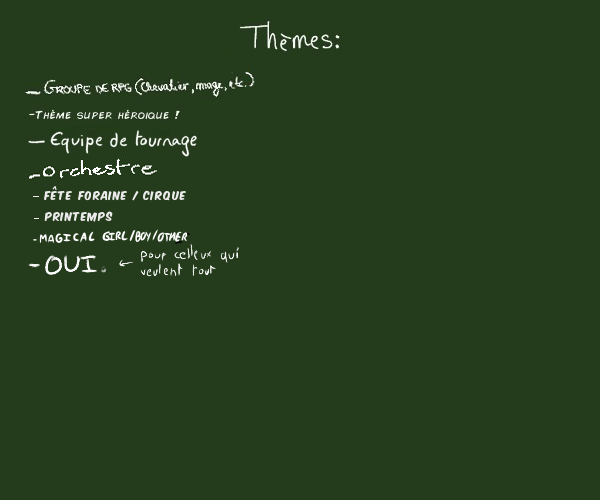 Thèmes:
- GROUPE DE RPG (Chevalier, mage, etc.)
- THÈME SUPER HÉROIQUE !
- Equipe de tournage
- orchestre
- FÊTE FORAINE / CIRQUE
- PRINTEMPS
- MAGICAL GIRL/BOY/OTHER
- OUI. ← pour celleux qui
veulent tout